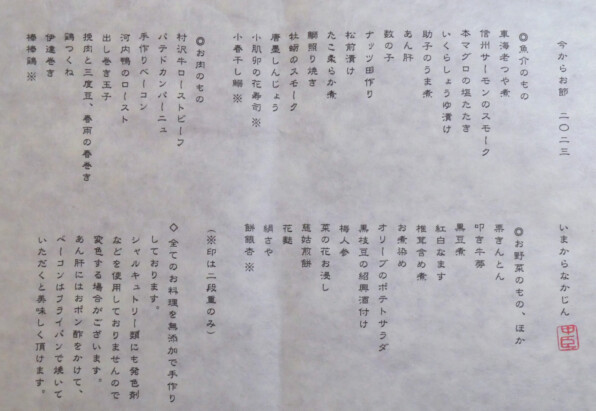 今からお節　二〇二三
◎魚介のもの
車海老つや煮
信州サーモンのスモーク
本マグロの塩たたき
いくらしょうゆ漬け
助子のうま煮
あん肝
数の子
ナッツ田作り
松前漬け
たこ柔らか煮
鰤照り焼き
牡蛎のスモーク
唐墨しんじょう
小肌卯の花寿司※
小春干し鰯※
◎お肉のもの
村沢牛ローストビーフ
パテドカンパーニュ
手作りベーコン
河内鴨のロースト
出し巻き玉子
挽肉と三度豆、春雨の春巻き
鶏つくね
伊達巻き
棒棒鶏※
いまからなかじん
中臣
◎お野菜のもの、ほか
栗きんとん
叩き牛蒡
黒豆煮
紅白なます
椎茸含め煮
お煮染め
オリーブのポテトサラダ
黒枝豆の紹興酒付け
梅人参
菜の花お浸し
慈姑煎餅
花麩
絹さや
餅銀杏※
（※印は二段重のみ）
◇全てのお料理を無添加で手作り
しております。
シャルキュトリー類にも発色剤
などを使用しておりませんので
変色する場合がございます。
あん肝にはお​ポン酢をかけて、
ベーコンはフライパンで焼いて
いただくと美味しく頂けます。